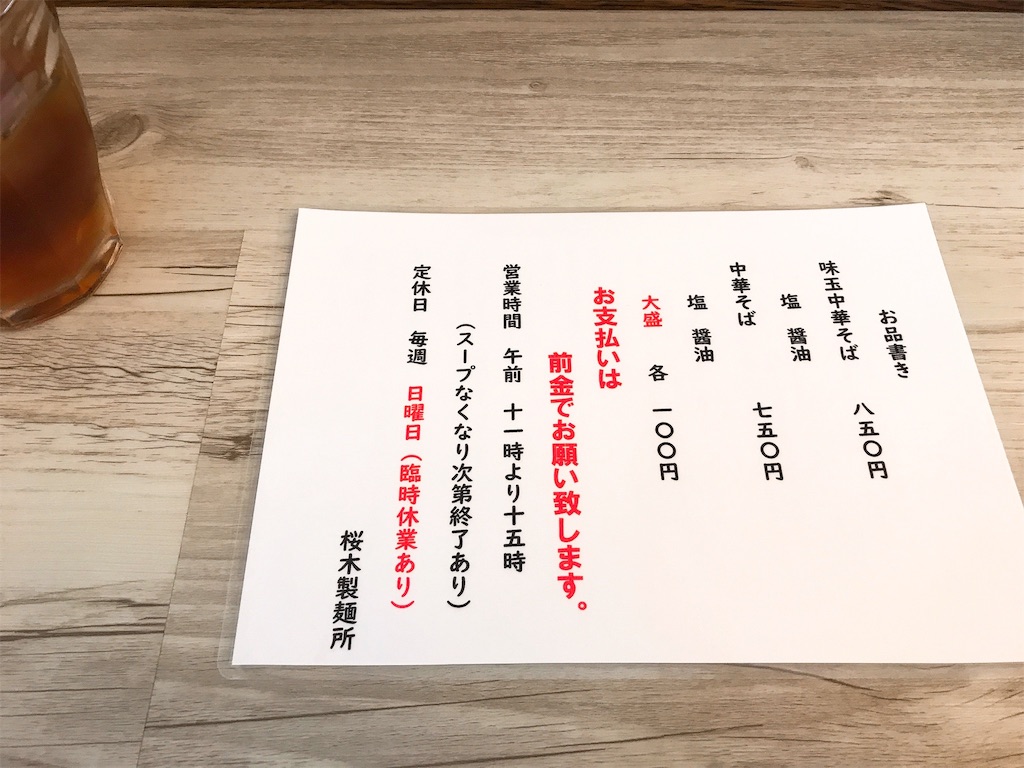 お品書き
味玉中華そば 八五〇円
塩 醤油
中華そば 七五〇円
塩 醤油
大盛 各 一〇〇円
お支払いは
前金でお願い致します。
営業時間 午前 十一時より十五時
（スープなくなり次第終了あり）
定休日 毎週 日曜日（臨時休業あり）
桜木製麺所